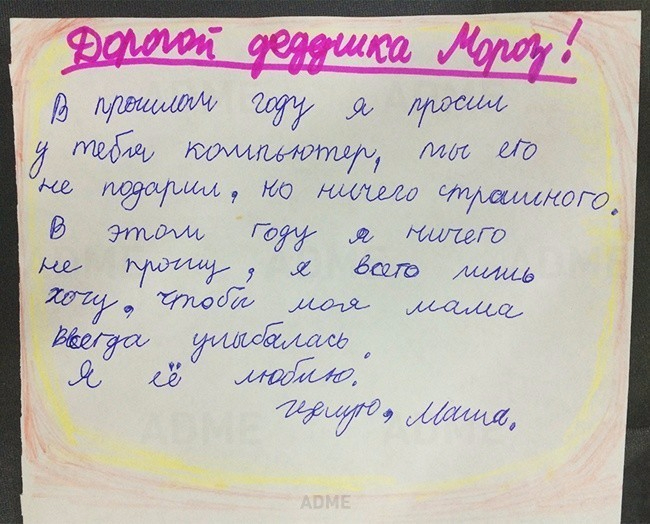 Дорогой дедушка Мороз!
В прошлом году я просил
у тебя компьютер, ты его
не подарил, но ничего страшного.
В этом году я ничего
не прошу, я всего лишь
хочу, чтобы моя мама
всегда улыбалась.
Я её люблю.
целую, Маша.
ADME